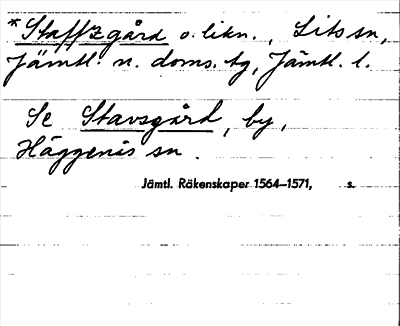 *Staffzgård o. likn., Lits sn,
Jämtl. n. doms. tg, Jämtl. l.
Se Stavsgård, by,
Häggenås sn.
Jämtl. Räkenskaper 1564–1571, s.